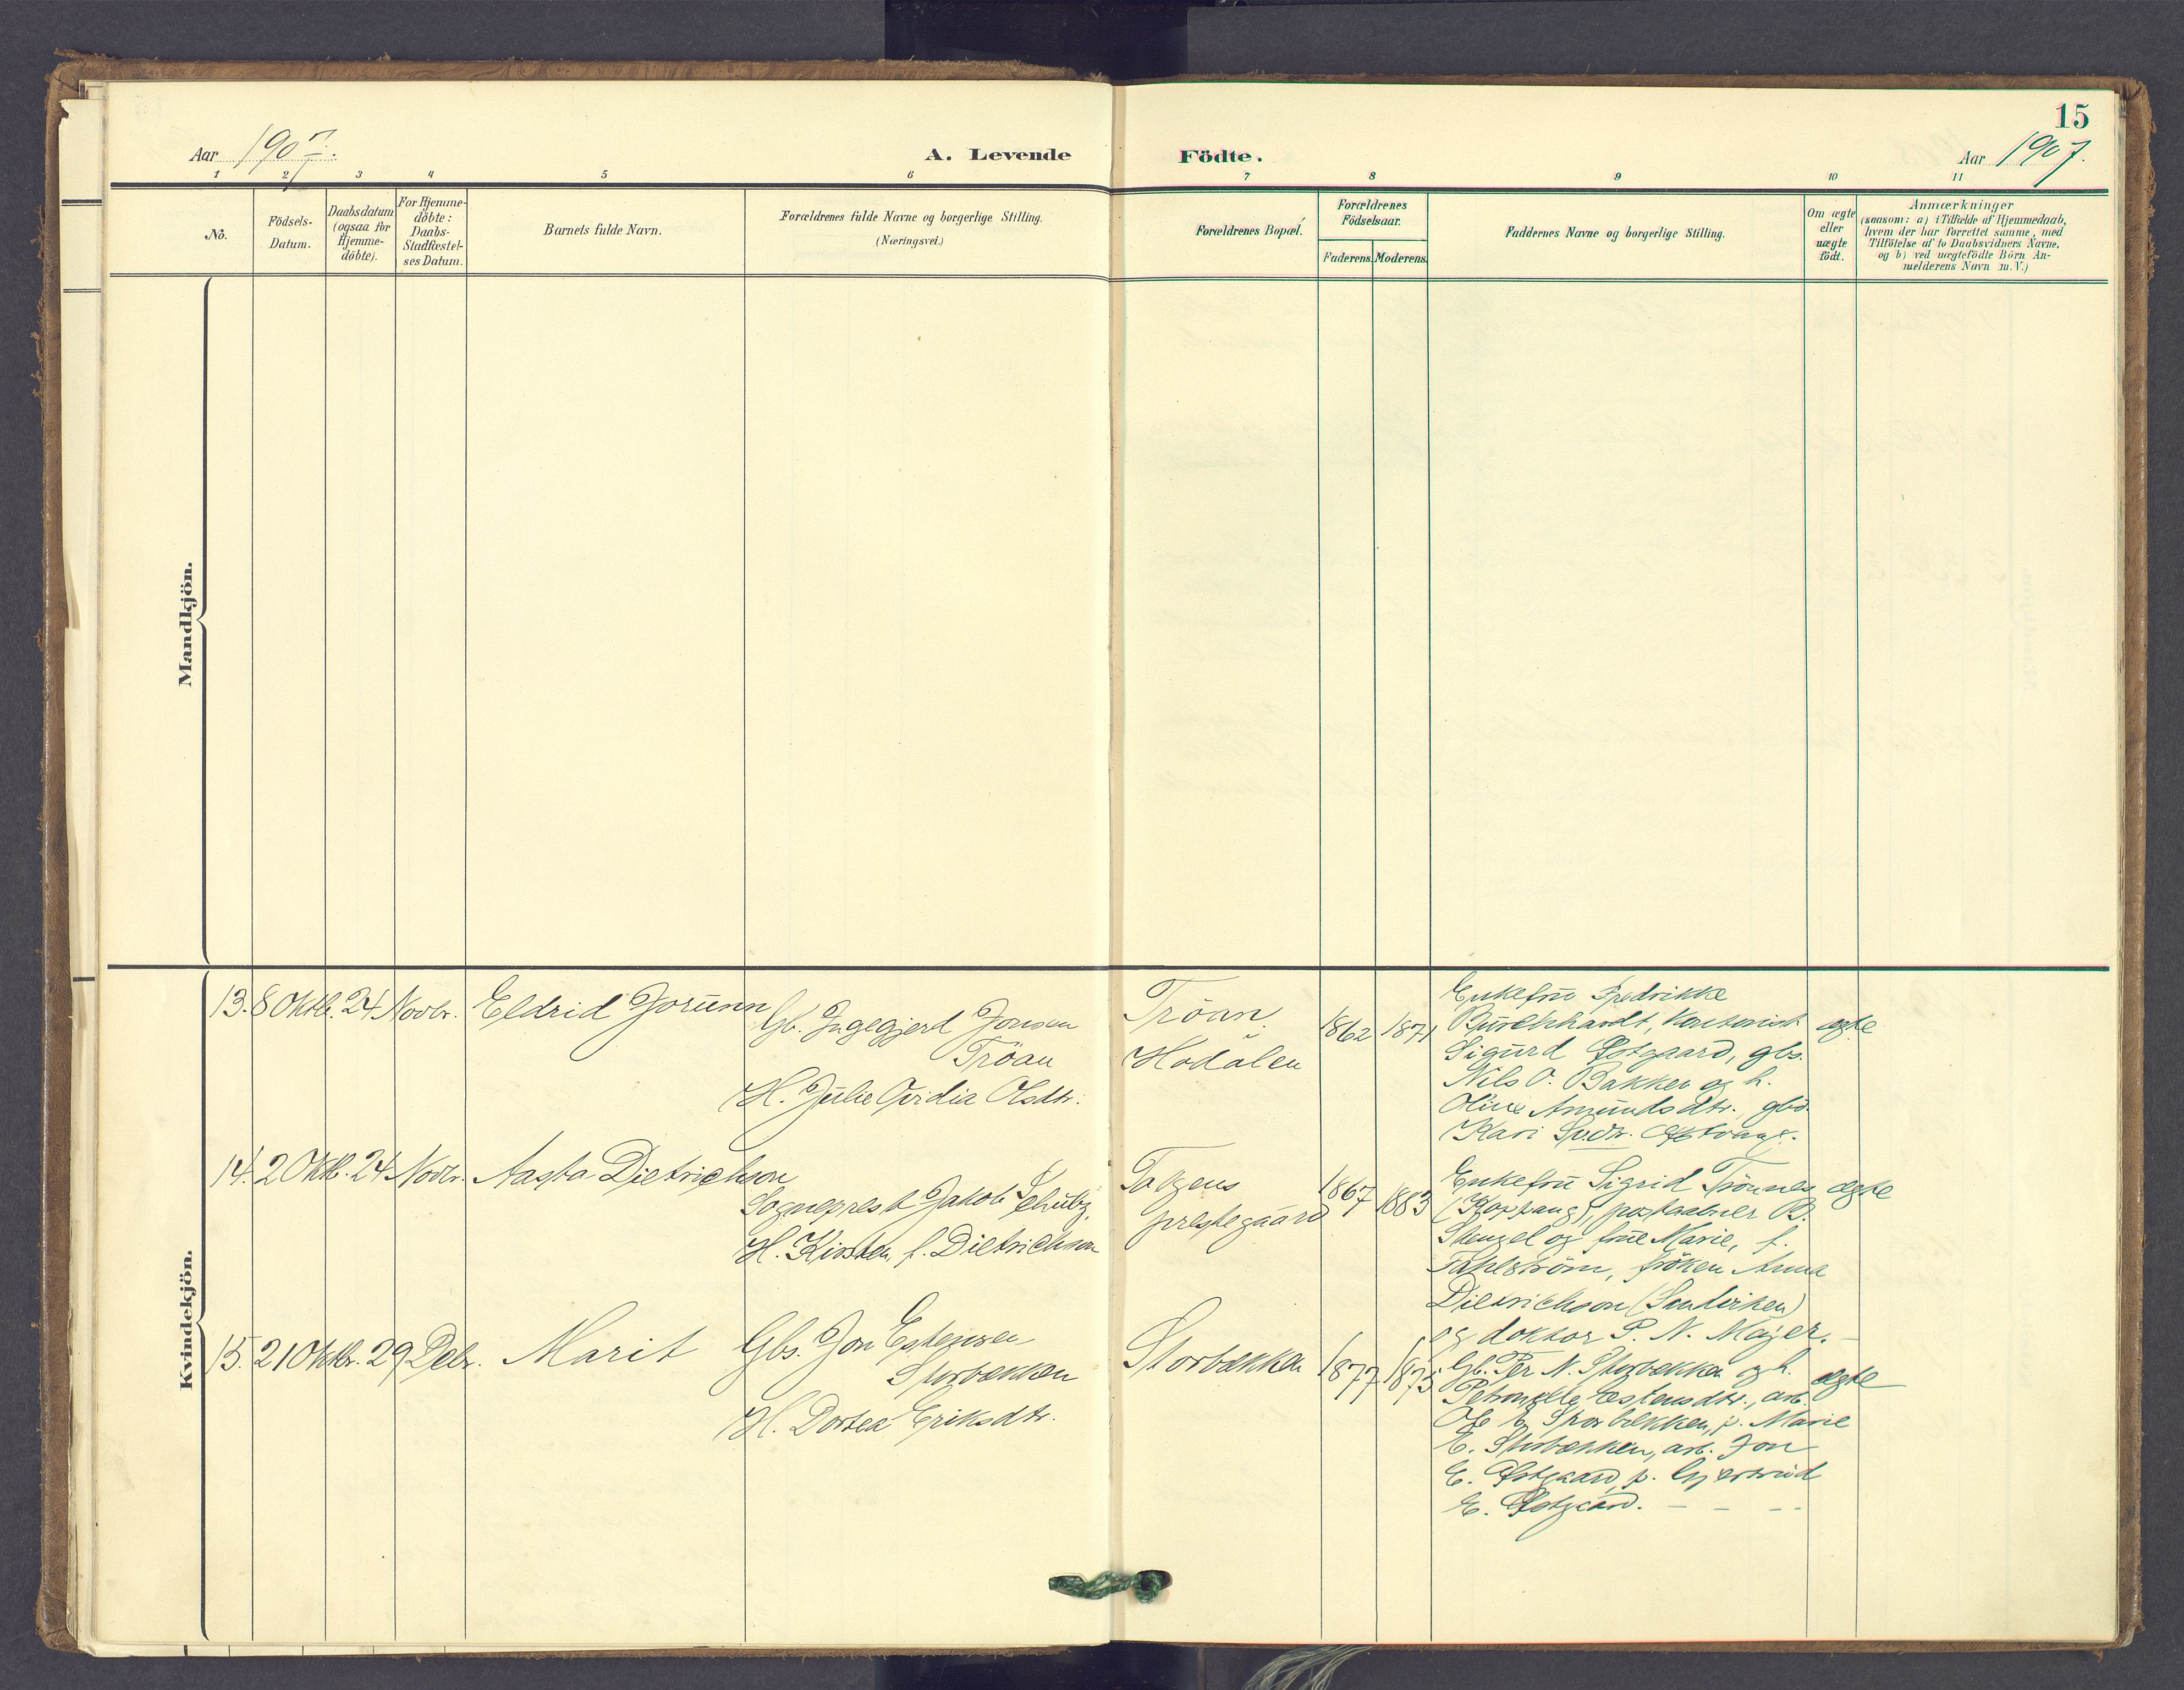 15
Aar 1907.
A. Levende
Födte.
Aar 1907.
1 2 3 4 5 6 7 8 9 10 11
No.
Födsels-
Datum.
Daabsdatum
(ogsaa for
Hjemme-
döbte).
For Hjemme-
döbte:
Daabs-
Stadfæstel-
ses Datum.
Barnets fulde Navn.
Forældrenes fulde Navne og borgerlige Stilling.
(Næringsvei.)
Forældrenes Bopæl.
Forældrenes
Födselsaar.
Faderens. Moderens.
Faddernes Navne og borgerlige Stilling.
Om ægte
eller
uægte
födt.
Anmærkninger
(saasom: a) i Tilfælde af Hjemmedaab,
hvem der har forrettet samme, med
Tilföielse af to Daabsvidners Navne,
og b) ved uægtefödte Börn An-
melderens Navn m. V.)
Mandkjön.
Kvindekjön.
13. 8 Oktb. 24 Novbr. Eldrid Jorunn
Gb. Ingegjerd Jonsen
Tröan
H. Julie Ovidia Olsdtr.
Tröan
Hodalen
1862 1871
Enkefru Fredrikke
Burchhardt, kontorist
Sigurd Østgaard, gbs.
Nils O. Bakken og h.
Oline Amundsdtr., gbd.
Kari
ægte
14. 2 Oktb. 24 Novbr. Aasta Dietrichson
Sogneprest Jakob Schultz,
H. Kirsten f. Dietrichson
Tolgens
prestegaard
1867 1883
Enkefru Sigrid Trönnes
(Koppang), postaabner B.
Stengel og frue Marie, f.
Fahlström, fröken Anna
Dietrichson
og doktor P. N. Majer.
ægte
15. 21 Oktbr. 29 Debr. Marit
Gbs. Jon Estensen
Storbækken
H. Dortea Eriksdtr.
Storbækken
1877 1875
Gb. Per N. Storbekken og h.
Petronelle Estensdtr., arb.
Ole E. Storbekken, p. Marie
E. Storbækken, arb. Jon
E. Østgaard, p. Gjertrud
E. Østgård.
ægte